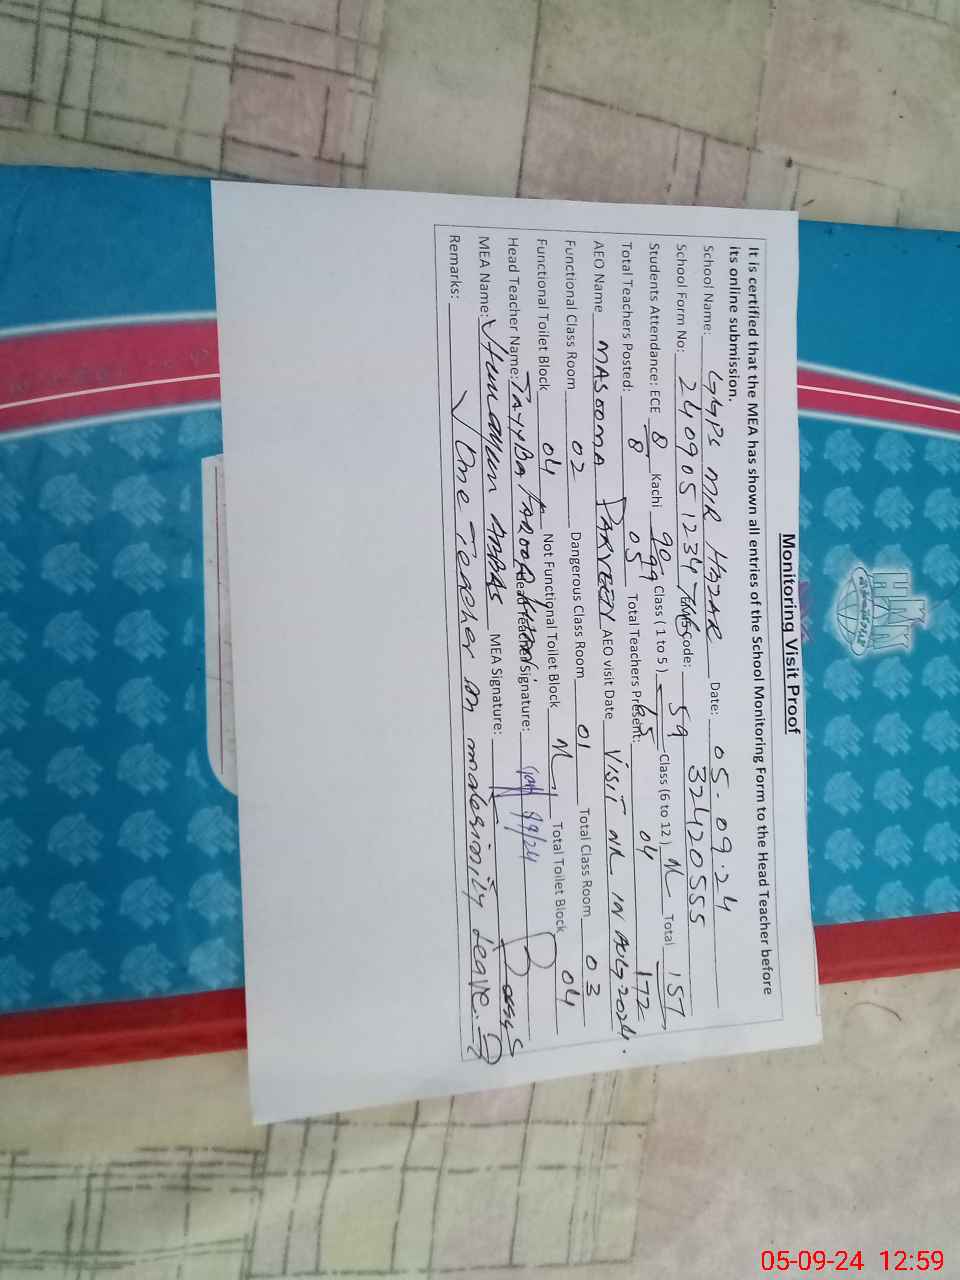 Monitoring Visit Proof
It is certified that the MEA has shown all entries of the School Monitoring Form to the Head Teacher before
its online submission.
School Name: GGPS MIR HAZAR Date: 05.09.24
School Form No: 2409051234759 Emis code: 32420555
Students Attendance: ECE 8/8 Kachi 90/99 Class ( 1 to 5 ) 59/65 Class (6 to 12 ) NL Total 157/172
Total Teachers Posted: 05 Total Teachers Present: 04
AEO Name MASOOMA PARVEEN AEO visit Date VISIT NIL IN AUG 2024.
Functional Class Room 02 Dangerous Class Room 01 Total Class Room 03
Functional Toilet Block 04 Not Functional Toilet Block NL Total Toilet Block 04
Head Teacher Name: TAYYBA FAROOQ Head Teacher Signature:
MEA Name: Humayun ABBAS MEA Signature:
Remarks: One Teacher on
leave.
05-09-24 12:59